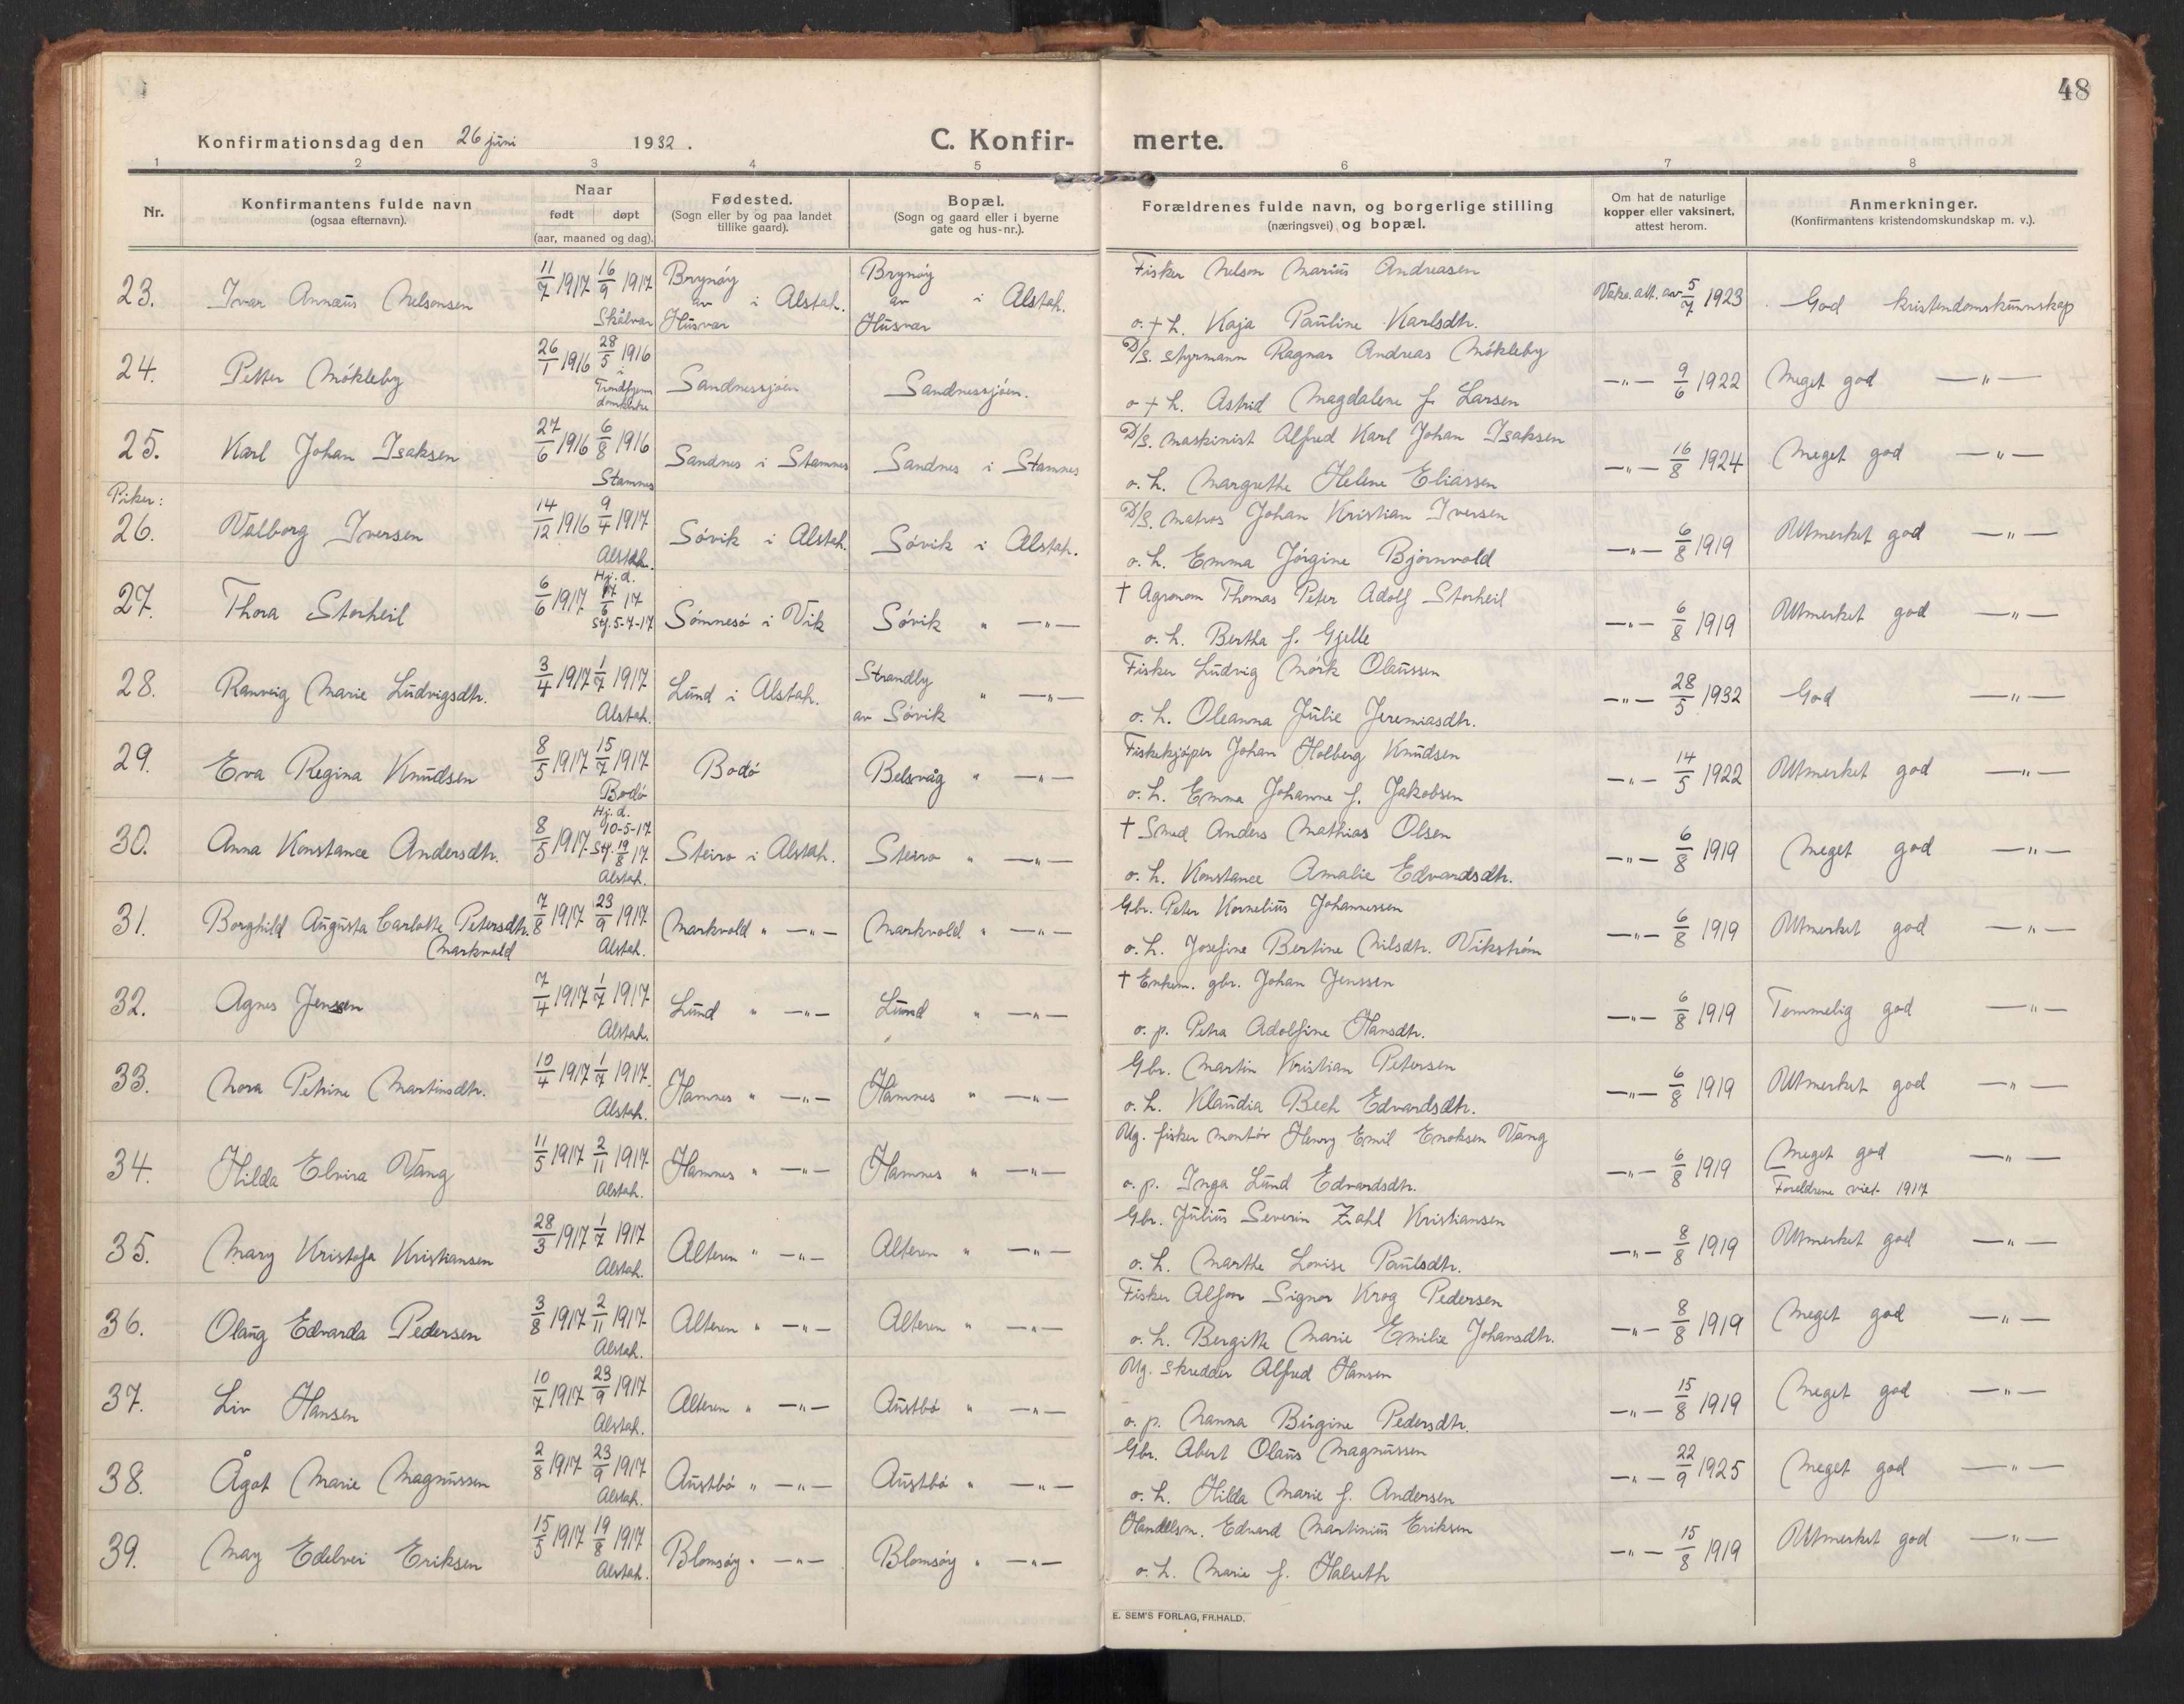 48
Konfirmationsdag den 26 juni 1932. C. Konfir- merte.
1 2 3 4 5 6 7 8
Nr.
Konfirmantens fulde navn
(ogsaa efternavn).
Naar
født døpt
(aar, maaned og dag).
Fødested.
(Sogn eller by og paa landet
tillike gaard).
Bopæl.
(Sogn og gaard eller i byerne
gate og hus-nr.).
Forældrenes fulde navn, og borgerlige stilling
(næringsvei) og bopæl.
Om hat de naturlige
kopper eller vaksinert,
attest herom.
Anmerkninger.
(Konfirmantens kristendomskundskap m. v.).
23. Ivar Annæus Nelsonsen 11/7 1917 16/9 1917 Skålvær Brynøy av Husvær i Alstah. Brynøy av Husvær i Alstah.
Fisker Nelson Marius Andreasen
o. + h. Kaja Pauline Karlsdtr.
Vaks. att. av 5/7 1923 God kristendomskunnskap
24. Petter Møkleby 26/1 1916 28/5 1916 i Trondhjem domkirke Sandnessjøen Sandnessjøen.
D/S. styrmann Ragnar Andreas Møkleby
o + h. Astrid Magdalene f. Larsen
—"— 9/6 1922 Meget god —"—
25. Karl Johan Isaksen 27/6 1916 6/8 1916 Stamnes Sandnes i Stamnes Sandnes i Stamnes
D/S. maskinist Alfred Karl Johan Isaksen
o. h. Margrethe Helene Eliassen
—"— 16/8 1924 Meget god —"—
Piker:
26. Valborg Iversen 14/12 1916 9/4 1917 Alstah. Søvik i Alstah. Søvik i Alstah.
D/S. matros Johan Kristian Iversen
o. h. Emma Jørgine Bjørnvold
—"— 6/8 1919 Utmerket god —"—
27. Thora Storheil 6/6 1917 Hj. d. 17/6 17 Stf. 5-7-17 Sømnesø i Vik Søvik " —"—
† Agronom Thomas Peter Adolf Storheil
o. h. Bertha f. Gjelle
—"— 6/8 1919 Utmerket god —"—
28. Ranveig Marie Ludvigsdtr. 3/4 1917 1/7 1917 Alstah. Lund i Alstah. Strandby av Søvik " —"—
Fisker Ludvig Mørk Olaussen
o. h. Oleanna Julie Jeremiasdtr.
—"— 28/5 1932 God —"—
29. Eva Regina Knudsen 8/5 1917 15/7 1917 Bodø Bodø Belsvåg " —"—
Fiskekjøper Johan Holberg Knudsen
o. h. Emma Johanne f. Jakobsen
—"— 14/5 1922 Utmerket god —"—
30. Anna Konstance Andersdtr. 8/5 1917 Hj. d. 10-5-17 Stf. 19/8 17 Alstah. Steiro i Alstah. Steiro " —"—
† Smed Anders Mathias Olsen
o. h. Konstance Amalie Edvardsdtr.
—"— 6/8 1919 Meget god —"—
31. Borghild Augusta Carlotte Petersdtr. 7/8 1917 23/9 1917 Alstah. Markvold " —"— Markvold " —"—
Markvold
Gbr. Peter Kornelius Johannessen
o. h. Josefine Bertine Nilsdtr. Vikstrøm
—"— 6/8 1919 Utmerket god —"—
32. Agnes Jenssen 7/4 1917 1/7 1917 Alstah. Lund " —"— Lund " —"—
† Enkem. gbr. Johan Jenssen
o. p. Petra Adolfine Hansdtr.
—"— 6/8 1919 Temmelig god —"—
33. Nora Petrine Martinsdtr. 10/4 1917 1/7 1917 Alstah. Hamnes " —"— Hamnes " —"—
Gbr. Martin Kristian Petersen
o. h. Klaudia Bech Edvardsdtr.
—"— 6/8 1919 Utmerket god —"—
34. Hilda Elvira Vang 11/5 1917 2/11 1917 Alstah. Hamnes " —"— Hamnes " —"—
Ug. fisker montør Henry Emil Enoksen Vang
o. p. Inga Lund Edvardsdtr.
—"— 6/8 1919 Meget god —"—
Foreldrene viet 1917
35. Mary Kristofa Kristiansen 28/3 1917 1/7 1917 Alstah. Alteren " —"— Alteren " —"—
Gbr. Julius Severin Zahl Kristiansen
o. h. Marthe Lovise Paulsdtr.
—"— 8/8 1919 Utmerket god —"—
36. Olaug Edvarda Pedersen 3/8 1917 2/11 1917 Alstah. Alteren " —"— Alteren " —"—
Fisker Alfon Signor Krog Pedersen
o. h. Bergitte Marie Emilie Johansdtr.
—"— 8/8 1919 Meget god —"—
37. Liv Hansen 10/7 1917 23/9 1917 Alstah. Alteren " —"— Austbø " —"—
Ug. skredder Alfred Hansen
o. p. Nanna Birgine Pedersdtr.
—"— 15/8 1919 Meget god —"—
38. Ågot Marie Magnussen 2/8 1917 23/9 1917 Alstah. Austbø " —"— Austbø " —"—
Gbr. Abert Olaus Magnussen
o. h. Hilda Marie f. Andersen
—"— 22/9 1925 Meget god —"—
39. May Edelvei Eriksen 15/5 1917 19/8 1917 Alstah. Blomsøy " —"— Blomsøy " —"—
Handelsm. Edvard Martinius Eriksen
o. h. Marie f. Halseth
—"— 15/8 1919 Utmerket god —"—
E. SEM'S FORLAG, FR.HALD.